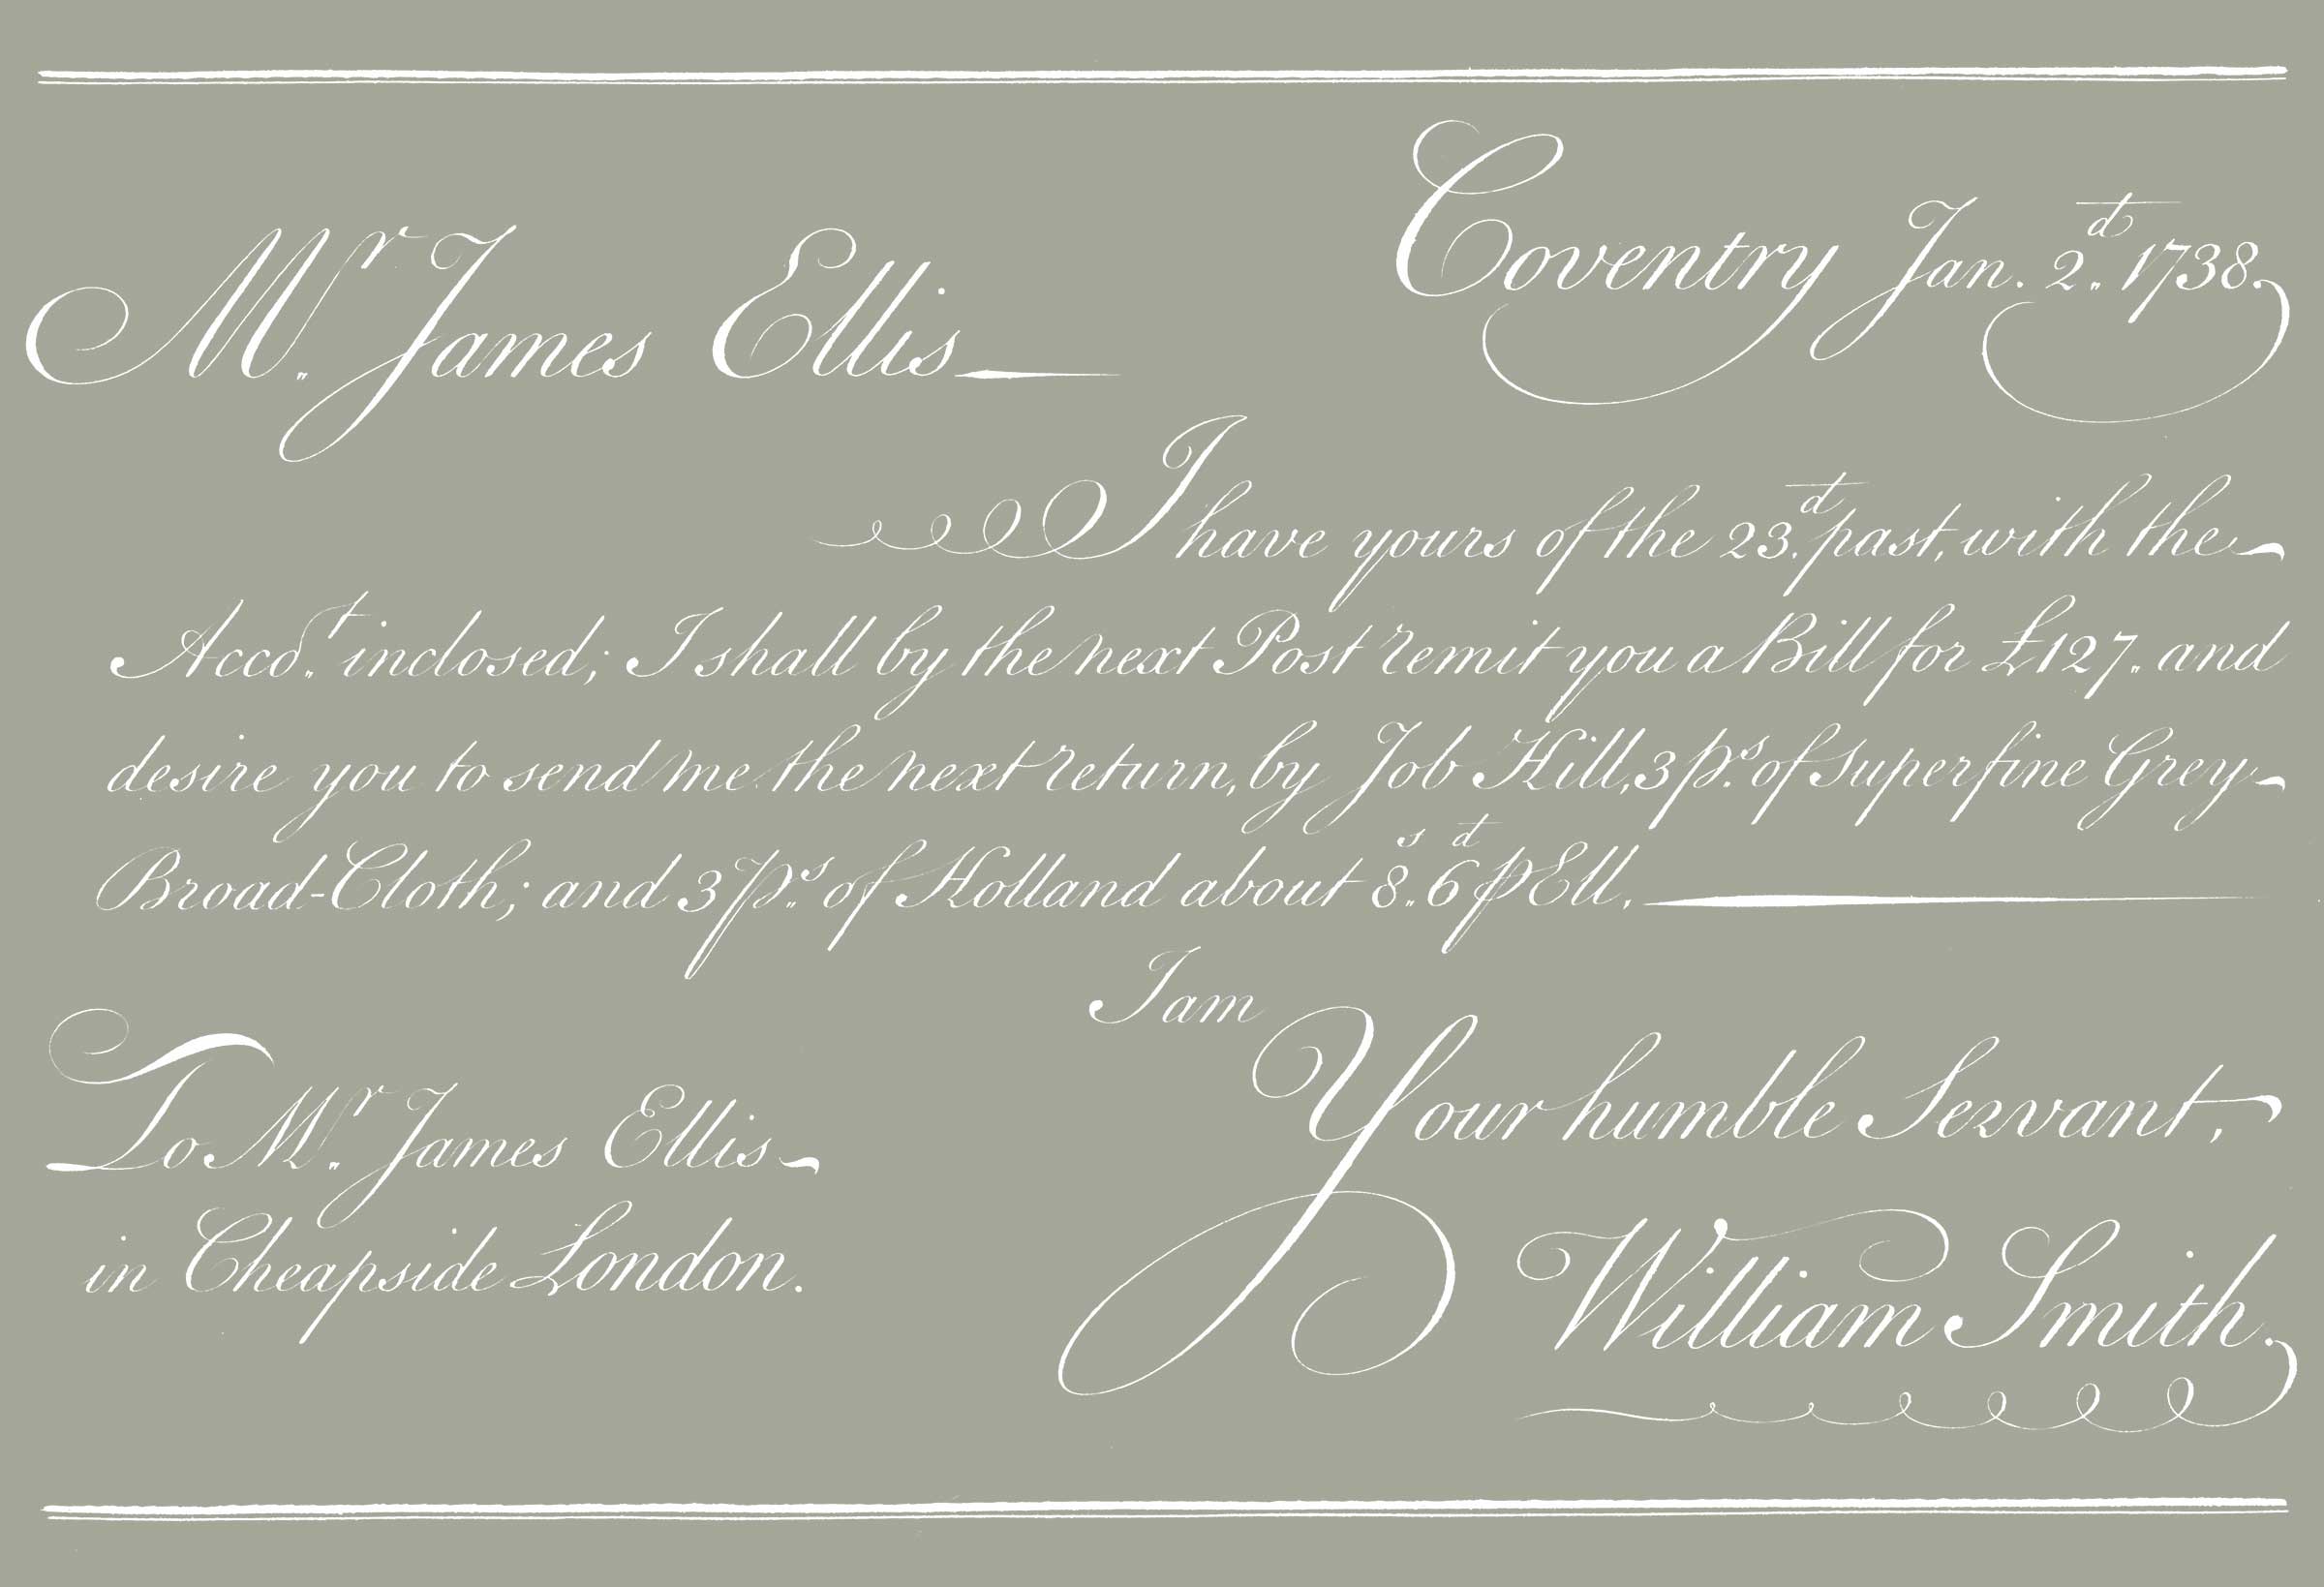 Coventry Jan. 2.d 1738.
Mr. James Ellis
I have yours of the 23.d past, with the
Acco.t inclosed; I shall by the next Post remit you a Bill for £127. and
desire you to send me the next return, by Job Hill, 3 p.s of Superfine Grey
Broad-Cloth; and 3 p.s of Holland about 8.s 6d ⅌ Ell.
I am
Your humble Servant,
To Mr. James Ellis
in Cheapside London.
William Smith.